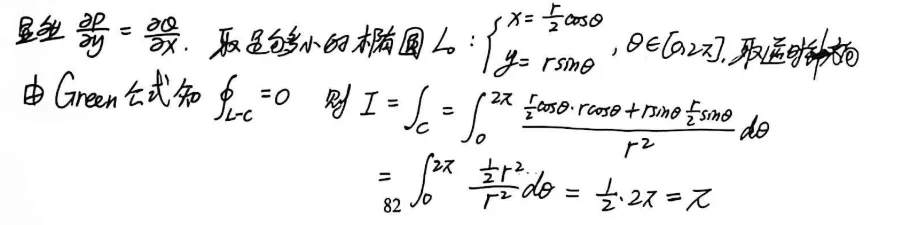 显然 ∂P/∂y = ∂Q/∂x. 取足够小的椭圆 L₀: { x = r/2 cosθ, y = r sinθ , θ∈[0,2π], 取逆时针方向
由 Green 公式知 ∮_{L-C} = 0 则 I = ∫_C = ∫₀^{2π} (r/2 cosθ·r cosθ + r sinθ r/2 sinθ)/r² dθ
= ∫₀^{2π} (1/2 r²)/r² dθ = 1/2·2π = π
82